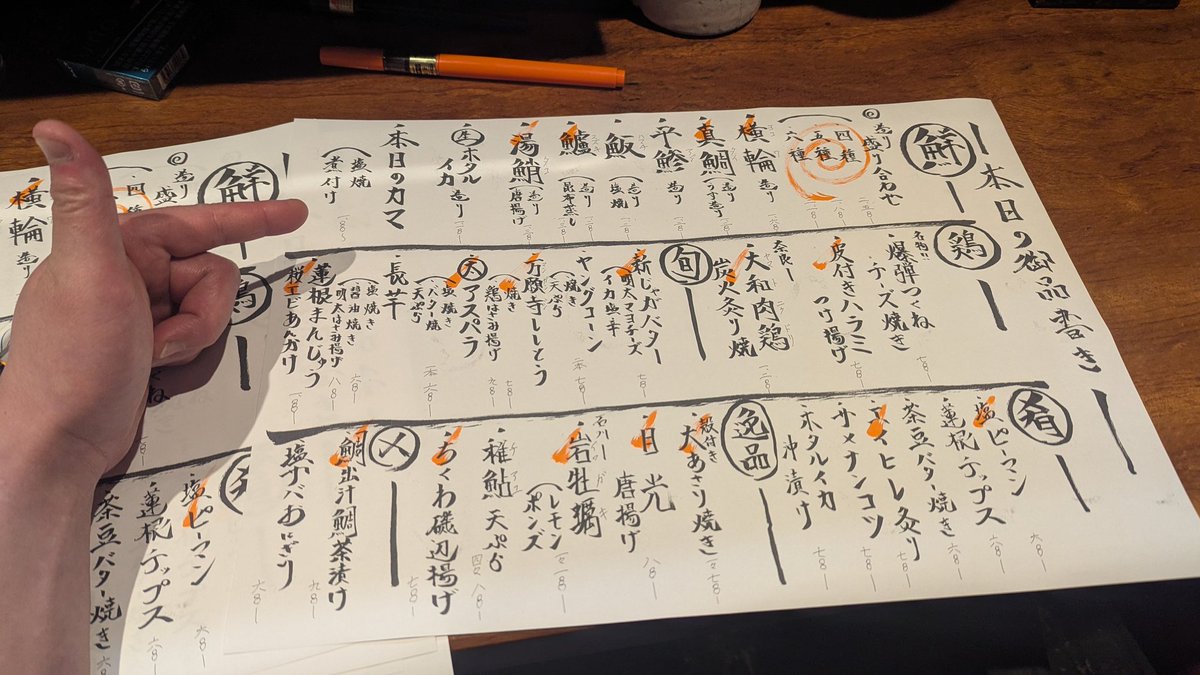 本日の御品書き
鮮
造り盛り合わせ
四種
五種
六種
横輪 造り
真鯛 造り
平鯵 造り
飯 造り 塩焼
鱸 造り 昆布蒸し
湯鮹 造り 唐揚げ
生 ホタルイカ 造り
本日のカマ 塩焼 煮付
鶏
名物!! 爆弾つくね チーズ焼き 七八〇
皮付きハラミ つけ揚げ 七八〇
奈良 大和肉鶏 炭火炙り焼 一二八〇
旬
新じゃがバター 明太マヨチーズ イカ塩辛
ヤングコーン 焼き 天ぷら
万願寺ししとう 焼き 鶏はさみ揚げ
大アスパラ 塩焼き バター焼 天ぷら
長芋 塩焼き 醤油焼き 明太はさみ揚げ
蓮根まんじゅう 桜エビあんかけ
肴
塩ピーマン
蓮根チップス
茶豆バター焼き
エイヒレ炙り
サメナンコツ
ホタルイカ 沖漬け
逸品
殻付き 大あさり焼き
目光 唐揚げ
石川 岩牡蠣 レモン ポンズ
稚鮎 天ぷら
ちくわ磯辺揚げ
〆
鯛出汁鯛茶漬け
塩サバおにぎり
鮮
造り盛
四
横輪 造り
塩ピーマン
蓮根チップス
茶豆バター焼き